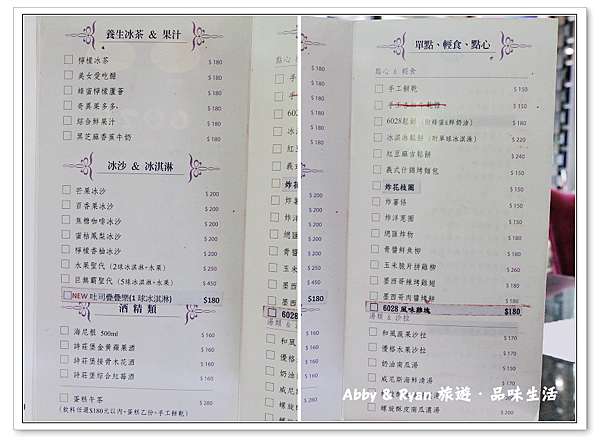 養生冰茶 & 果汁
檸檬冰茶 $180
美女愛吃醋 $180
蜂蜜檸檬蘆薈 $180
奇異果多多 $180
綜合鮮果汁 $180
黑芝麻香蕉牛奶 $180
冰沙 & 冰淇淋
芒果冰沙 $200
百香果冰沙 $200
焦糖咖啡冰沙 $200
蜜桔鳳梨冰沙 $200
檸檬香柚冰沙 $200
水果聖代 (2球冰淇淋+水果) $250
巨無霸聖代 (5球冰淇淋+水果) $450
NEW 吐司疊疊樂(1球冰淇淋) $180
酒精類
海尼根 500ml $160
詩莊堡金黃蘋果酒 $160
詩莊堡接骨木花酒 $160
詩莊堡綜合紅莓酒 $160
蛋糕午茶 $280
(飲料任選$180元以內+蛋糕乙份+手工餅乾)
點心 &
手工
6028
冰淇
紅豆
義式
炸花
炸薯
炸洋
總匯
青醬
玉米
墨西
墨西
6028
湯類 &
和風
優格
奶油
威尼
螺旋
單點、輕食、點心
點心 & 輕食
手工餅乾 $150
$150
6028鬆餅 (附蜂蜜&鮮奶油) $180
冰淇淋鬆餅 (附單球冰淇淋) $220
紅豆麻吉鬆餅 $240
義式什錦烤麵包 $150
炸花枝圈
炸薯條 $150
炸洋蔥圈 $150
總匯炸物
青醬鮮魚柳
玉米脆片拼雞柳
墨西哥辣烤雞翅
墨西哥肉醬烤餅
6028 風味雞塊 $180
湯類 & 沙拉
和風蔬果沙拉 $170
優格水果沙拉 $170
奶油南瓜湯 $150
威尼斯海鮮清湯 $150
螺旋酥皮南瓜濃湯 $150
Abby & Ryan 旅遊．品味生活